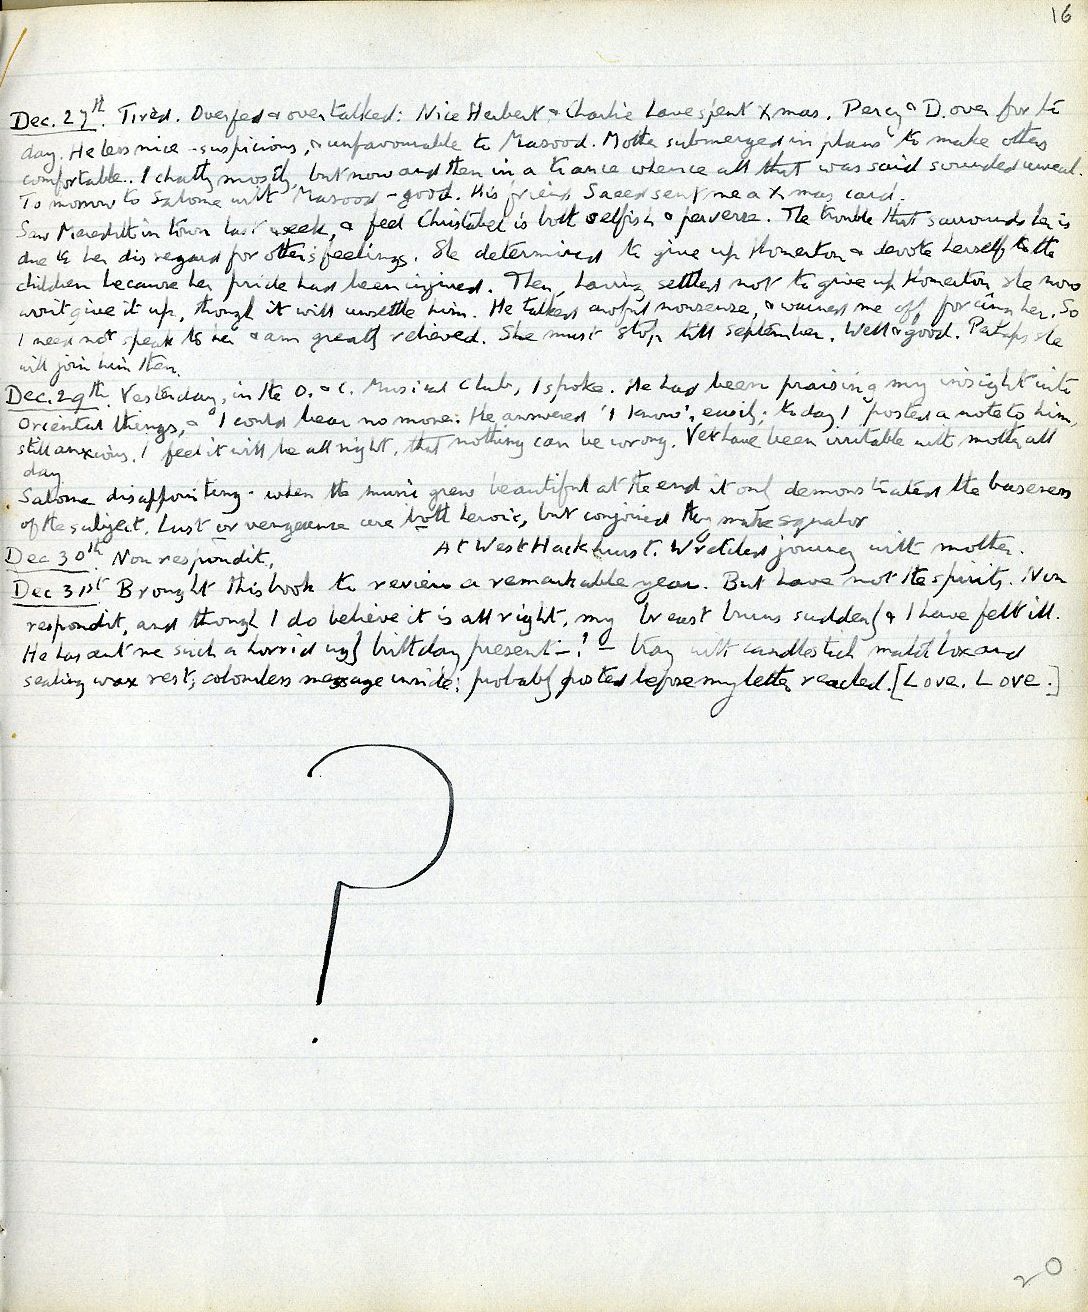 16
Dec. 27th. Tired. Overfed & overtalked: Nice Herbert & Charlie have spent Xmas. Percy & D. over for the
day. He less nice - suspicious, & unfavourable to Masood. Mother submerged in plans to make others
comfortable. I chatty mostly but now and then in a trance whence all that was said sounded unreal.
To morrow to Salome with Masood - good. His friend Saeed sent me a X mas card.
Saw Meredith in town last week, & feel Christabel is both selfish & perverse. The trouble that surrounds her is
due to her disregard for other's feelings. She determined to give up Homerton & devote herself to the
children because her pride had been injured. Then, having settled not to give up Homerton she now
won't give it up, though it will unsettle him. He talked awful nonsense, & warned me off forcing her. So
I need not speak to her & am greatly relieved. She must stop till September. Well & good. Perhaps she
will join him then.
Dec. 29th. Yesterday, in the O. & C. Musical Club, I spoke. He had been praising my insight into
Oriental things, & I could bear no more. He answered 'I know', easily; today I posted a note to him,
still anxious. I feel it will be all right, that nothing can be wrong. Yet have been irritable with mother all
day
Salome disappointing - when the music grew beautiful at the end it only demonstrated the baseness
of the subject. Lust or vengeance are both heroic, but conjoined they make squalor
Dec 30th. Non respondit. At West Hackhurst. Wretched journey with mother.
Dec 31st Brought this book to review a remarkable year. But have not the spirits. Non
respondit, and though I do believe it is all right, my breast burns suddenly & I have felt ill.
He has sent me such a horrid ugly birthday present - ! - tray with candlestick match box and
sealing wax rest; colourless message inside; probably posted before my letter reached. [Love. Love.]
?
20